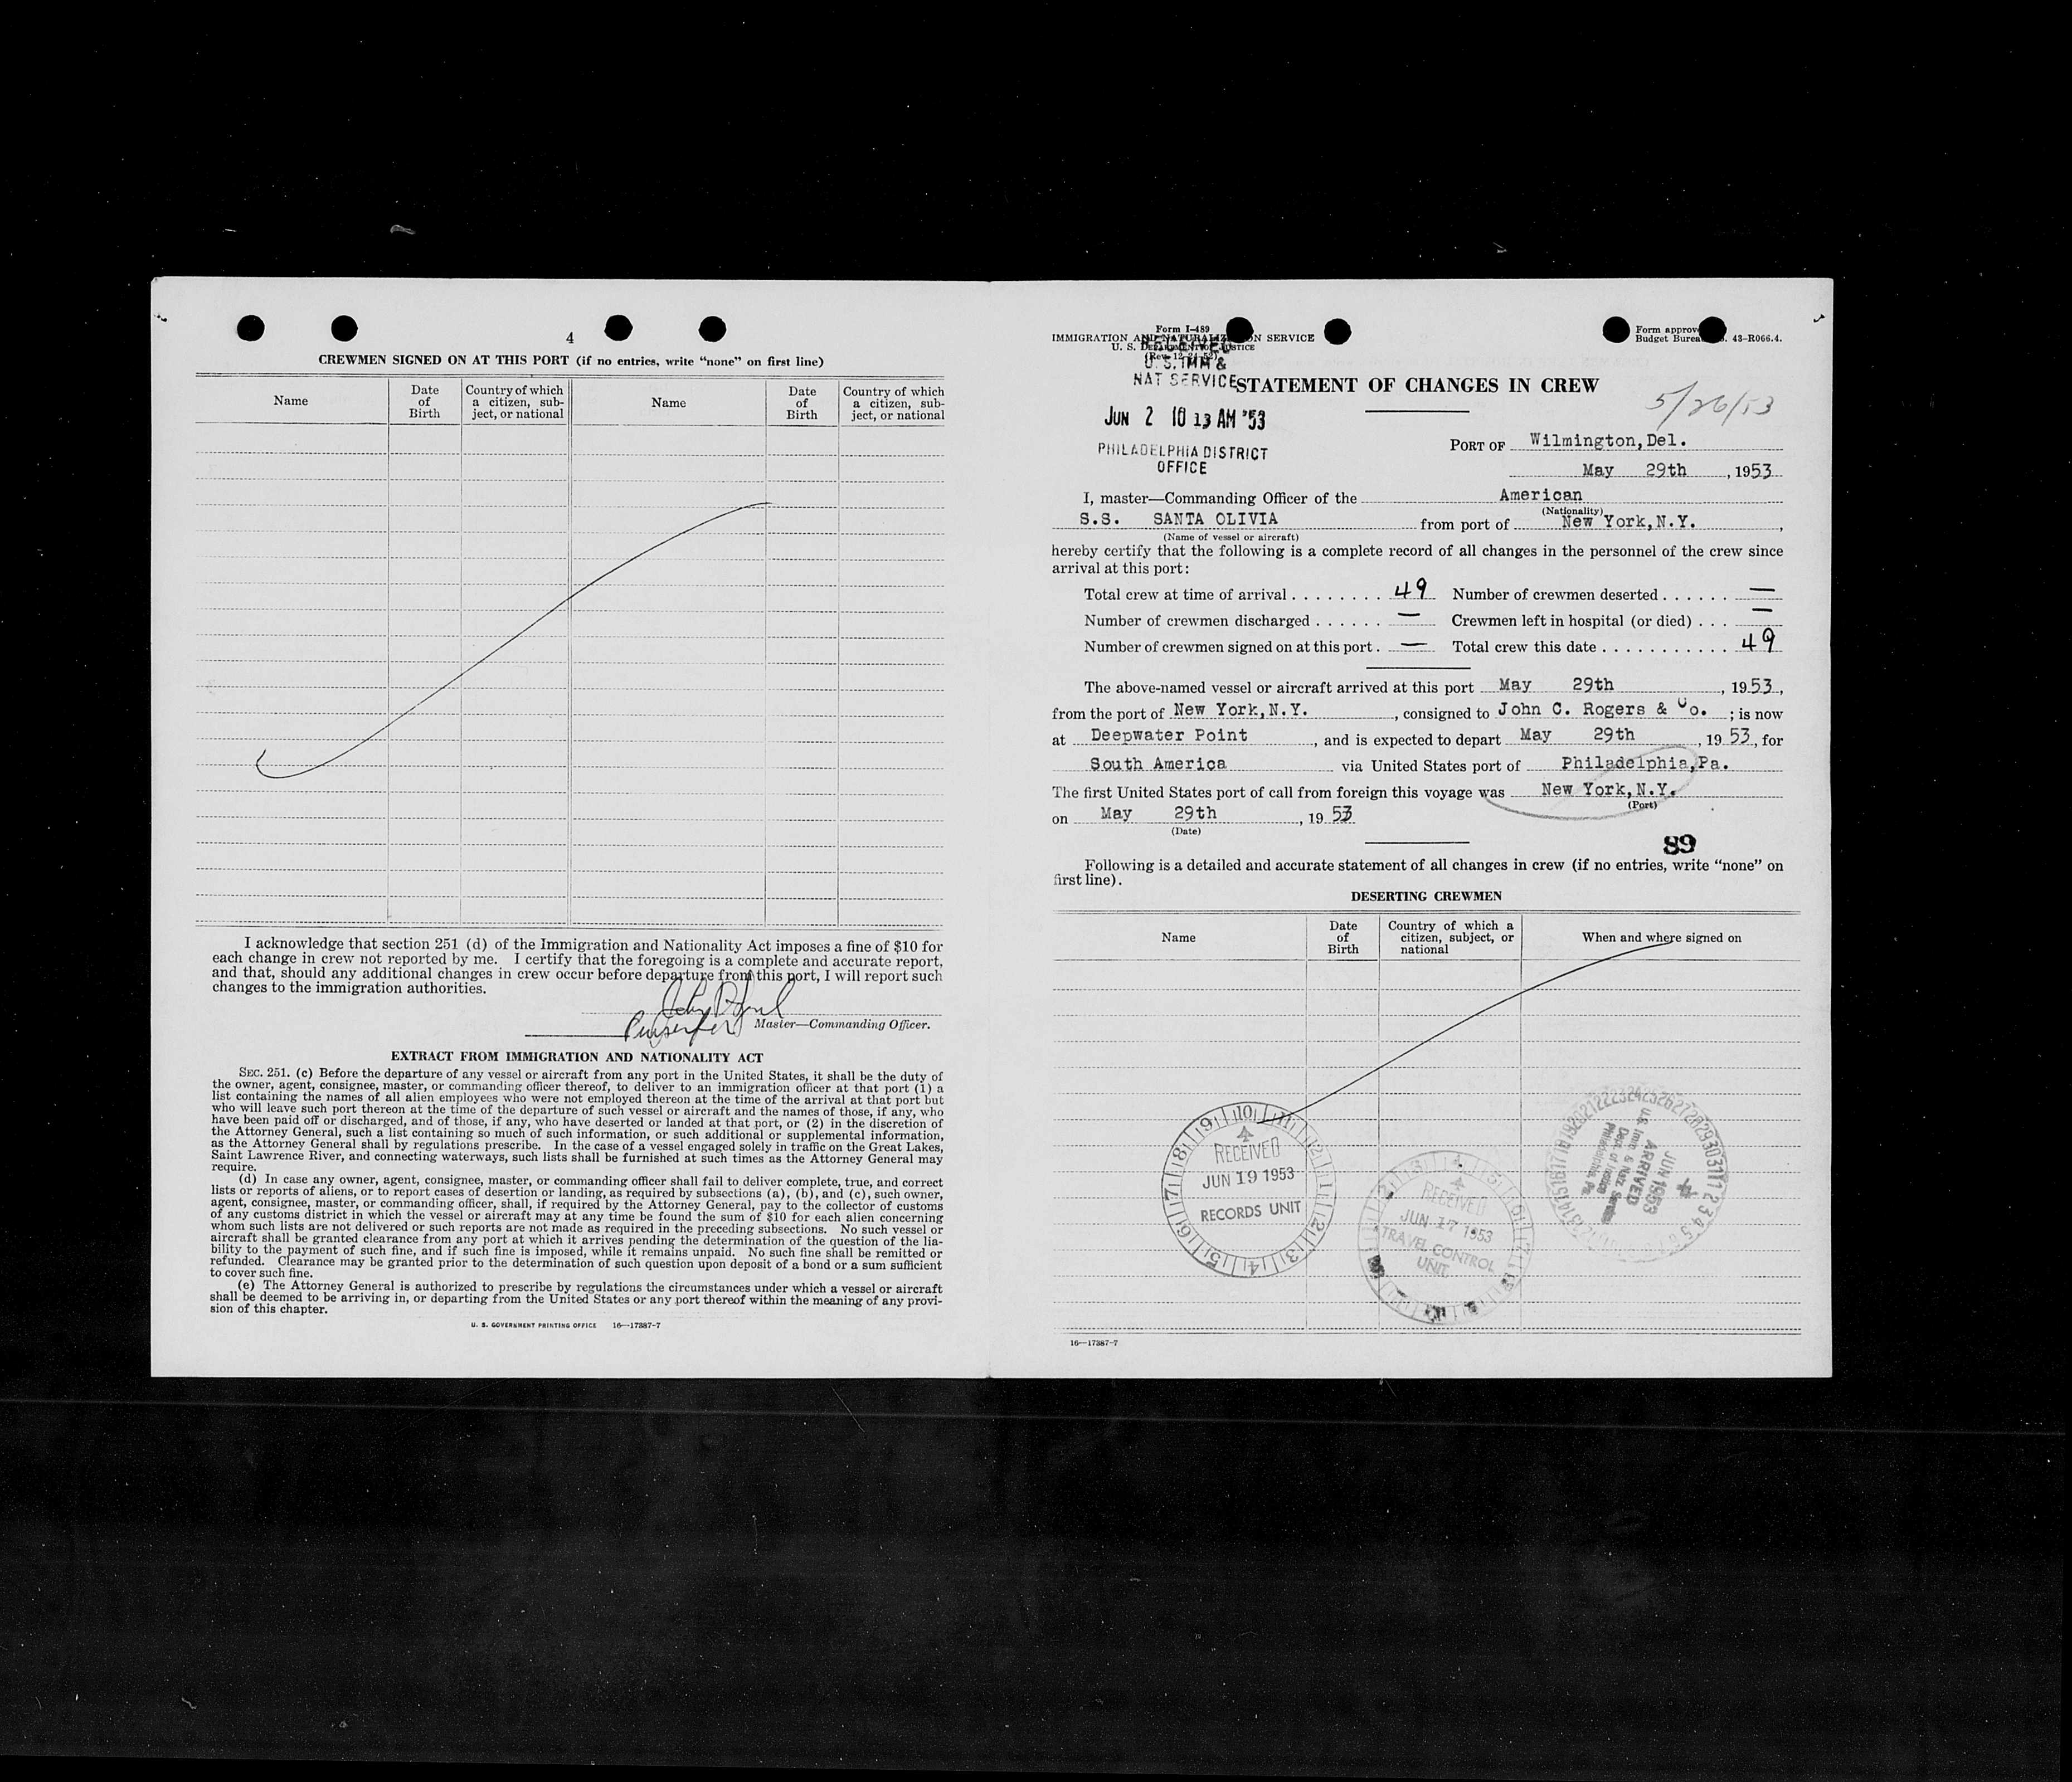 4
CREWMEN SIGNED ON AT THIS PORT (if no entries, write “none” on first line)
Name
Date
of
Birth
Country of which
a citizen, sub-
ject, or national
Name
Date
of
Birth
Country of which
a citizen, sub-
ject, or national
I acknowledge that section 251 (d) of the Immigration and Nationality Act imposes a fine of $10 for
each change in crew not reported by me. I certify that the foregoing is a complete and accurate report,
and that, should any additional changes in crew occur before departure from this port, I will report such
changes to the immigration authorities.
Master—Commanding Officer.
EXTRACT FROM IMMIGRATION AND NATIONALITY ACT
SEC. 251. (c) Before the departure of any vessel or aircraft from any port in the United States, it shall be the duty of
the owner, agent, consignee, master, or commanding officer thereof, to deliver to an immigration officer at that port (1) a
list containing the names of all alien employees who were not employed thereon at the time of the arrival at that port but
who will leave such port thereon at the time of the departure of such vessel or aircraft and the names of those, if any, who
have been paid off or discharged, and of those, if any, who have deserted or landed at that port, or (2) in the discretion of
the Attorney General, such a list containing so much of such information, or such additional or supplemental information,
as the Attorney General shall by regulations prescribe. In the case of a vessel engaged solely in traffic on the Great Lakes,
Saint Lawrence River, and connecting waterways, such lists shall be furnished at such times as the Attorney General may
require.
(d) In case any owner, agent, consignee, master, or commanding officer shall fail to deliver complete, true, and correct
lists or reports of aliens, or to report cases of desertion or landing, as required by subsections (a), (b), and (c), such owner,
agent, consignee, master, or commanding officer, shall, if required by the Attorney General, pay to the collector of customs
of any customs district in which the vessel or aircraft may at any time be found the sum of $10 for each alien concerning
whom such lists are not delivered or such reports are not made as required in the preceding subsections. No such vessel or
aircraft shall be granted clearance from any port at which it arrives pending the determination of the question of the lia-
bility to the payment of such fine, and if such fine is imposed, while it remains unpaid. No such fine shall be remitted or
refunded. Clearance may be granted prior to the determination of such question upon deposit of a bond or a sum sufficient
to cover such fine.
(e) The Attorney General is authorized to prescribe by regulations the circumstances under which a vessel or aircraft
shall be deemed to be arriving in, or departing from the United States or any port thereof within the meaning of any provi-
sion of this chapter.
U. S. GOVERNMENT PRINTING OFFICE 16—17387-7
Form I-489
IMMIGRATION AND NATURALIZATION SERVICE
U. S. DEPARTMENT OF JUSTICE
(Rev. 12-24-52)
Form approv
Budget Burea 43-R066.4.
RECEIVED
U. S. IMM &
NAT SERVICE
JUN 2 10 13 AM '53
PHILADELPHIA DISTRICT
OFFICE
STATEMENT OF CHANGES IN CREW
5/26/53
PORT OF Wilmington, Del.
May 29th, 1953
I, master—Commanding Officer of the American
(Nationality)
S.S. SANTA OLIVIA from port of New York, N.Y.,
(Name of vessel or aircraft)
hereby certify that the following is a complete record of all changes in the personnel of the crew since
arrival at this port:
Total crew at time of arrival ........ 49 Number of crewmen deserted ...... —
Number of crewmen discharged ...... — Crewmen left in hospital (or died) ... —
Number of crewmen signed on at this port. — Total crew this date ........... 49
The above-named vessel or aircraft arrived at this port May 29th, 1953,
from the port of New York, N.Y., consigned to John C. Rogers & Co. ; is now
at Deepwater Point, and is expected to depart May 29th, 1953, for
South America via United States port of Philadelphia, Pa.
The first United States port of call from foreign this voyage was New York, N.Y.
(Port)
on May 29th, 1953
(Date)
89
Following is a detailed and accurate statement of all changes in crew (if no entries, write “none” on
first line).
DESERTING CREWMEN
Name
Date
of
Birth
Country of which a
citizen, subject, or
national
When and where signed on
RECEIVED
JUN 19 1953
RECORDS UNIT
RECEIVED
JUN 17 1953
TRAVEL CONTROL
UNIT
JUN 1953
ARRIVED
U.S. Imm. & Natz. Service
Dept. of Justice
Philadelphia, Pa.
16—17387-7